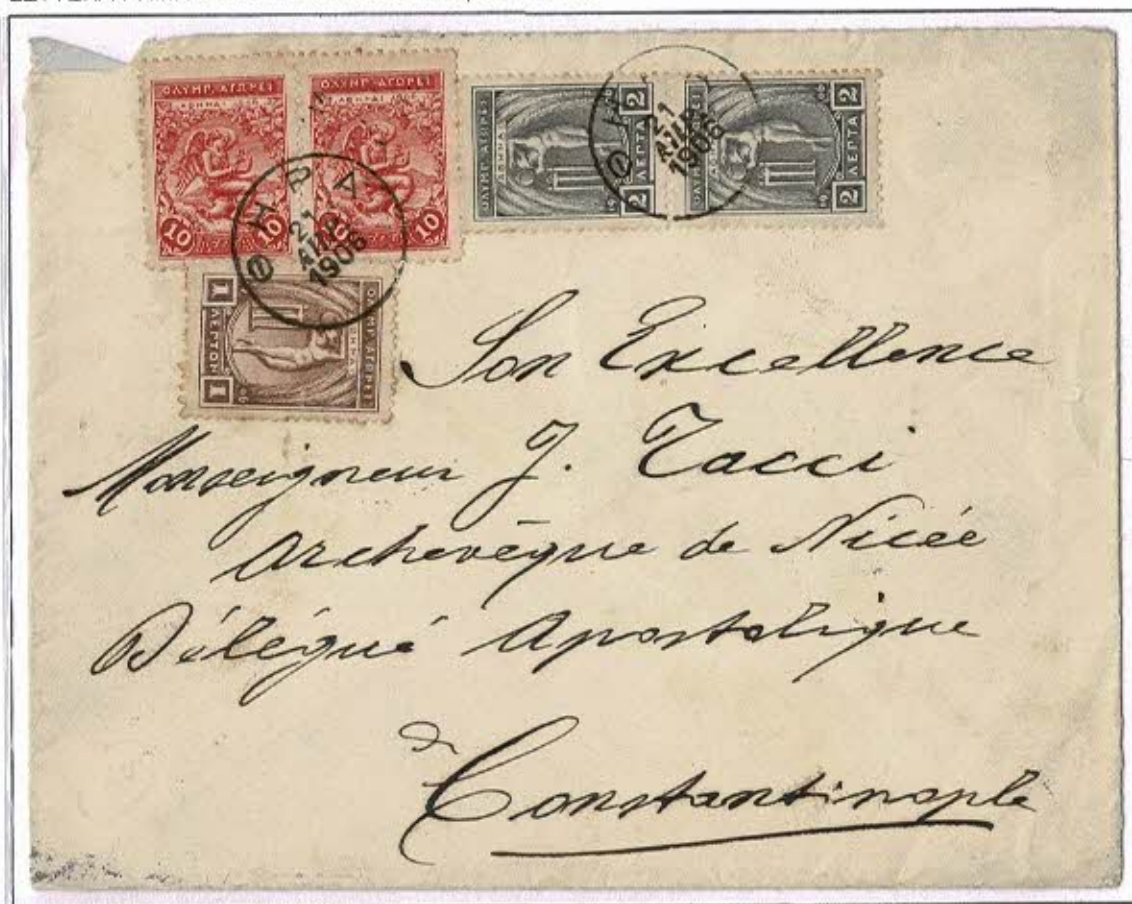 ΟΛΥΜΠ. ΑΓΩΝΕΣ
ΑΘΗΝΑΙ
10 10
ΟΛΥΜΠ. ΑΓΩΝΕΣ
ΑΘΗΝΑΙ
10
ΟΛΥΜΠ. ΑΓΩΝΕΣ
2 ΛΕΠΤΑ 2
ΟΛΥΜΠ. ΑΓΩΝΕΣ
2 ΛΕΠΤΑ 2
ΘΗΡΑ
21
ΑΠΡ
1906
Θ
21
ΑΠΡ
1906
1 ΛΕΠΤΟΝ 1
ΟΛΥΜΠ. ΑΓΩΝΕΣ
Son Excellence
Monseigneur J. Tacci
Archevêque de Nicée
Délégué Apostolique
à Constantinople